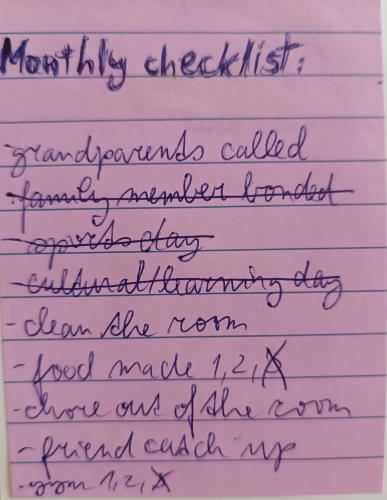 Monthly checklist:
-grandparents called
-family member bonded
-sports day
-cultural/learning day
-clean the room
-food made 1,2,X
-chore out of the room
-friend catch up
-gym 1,2,X